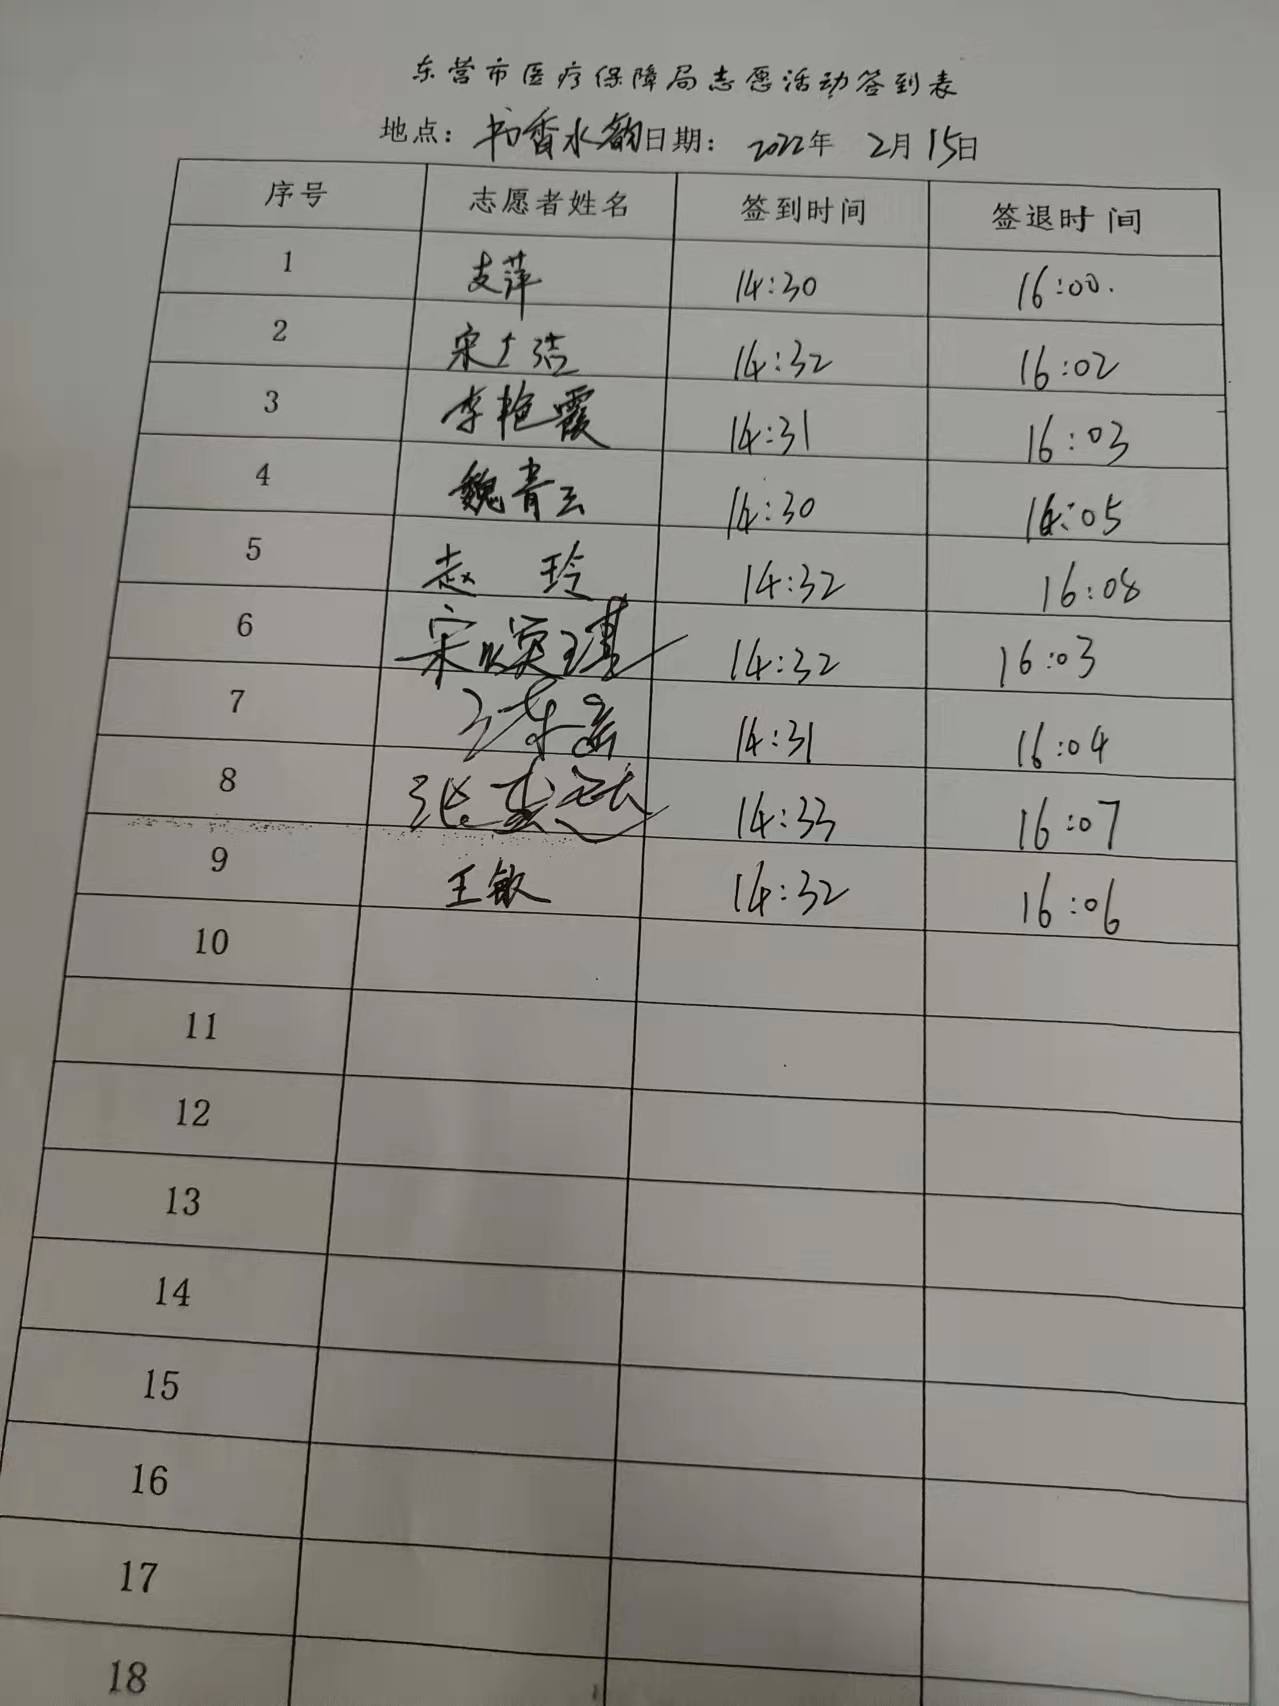 东营市医疗保障局志愿活动签到表
地点：书香水韵日期：2022年 2月15日
序号 志愿者姓名 签到时间 签退时间
1 支萍 14:30 16:00.
2 宋广洁 14:32 16:02
3 李艳霞 14:31 16:03
4 魏青云 14:30 16:05
5 赵玲 14:32 16:08
6 宋 14:32 16:03
7 14:31 16:04
8 张 14:33 16:07
9 王敏 14:32 16:06
10
11
12
13
14
15
16
17
18